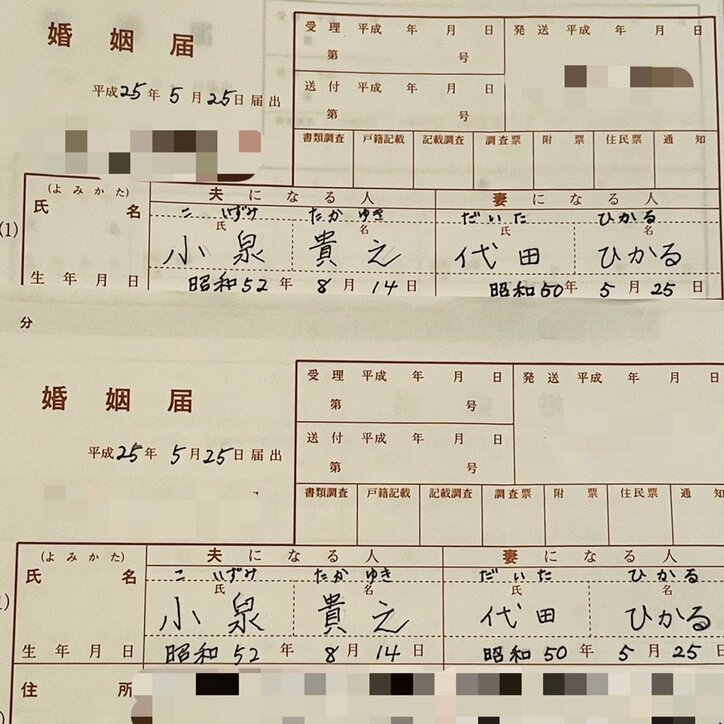 婚姻届
平成25年5月25日届出
受理 平成 年 月 日
第 号
発送 平成 年 月 日
送付 平成 年 月 日
第 号
書類調査 戸籍記載 記載調査 調査票 附票 住民票 通知
(1)
(よみかた)
夫になる人
妻になる人
こいずみ たかゆき
だいた ひかる
氏名
氏 名
氏 名
小泉 貴之
代田 ひかる
生年月日
昭和52年8月14日
昭和50年5月25日
分
婚姻届
平成25年5月25日届出
受理 平成 年 月 日
第 号
発送 平成 年 月 日
送付 平成 年 月 日
第 号
書類調査 戸籍記載 記載調査 調査票 附票 住民票 通知
(よみかた)
夫になる人
妻になる人
こいずみ たかゆき
だいた ひかる
氏名
氏 名
氏 名
小泉 貴之
代田 ひかる
生年月日
昭和52年8月14日
昭和50年5月25日
住所